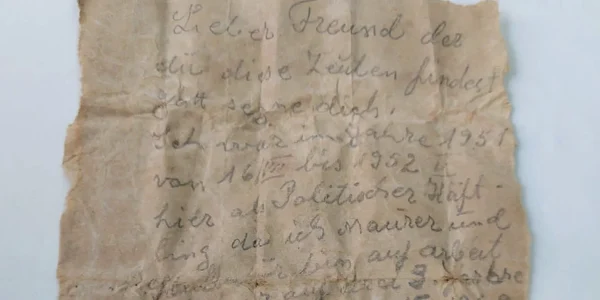 Lieber Freund der
dü diese Zeilen findest
gott segne dich.
Ich war im Jahre 1951
von 16 VII bis 1952 II
hier als Politischer Häft-
ling da ich Maurer und
bin auf arbeit
auf 3